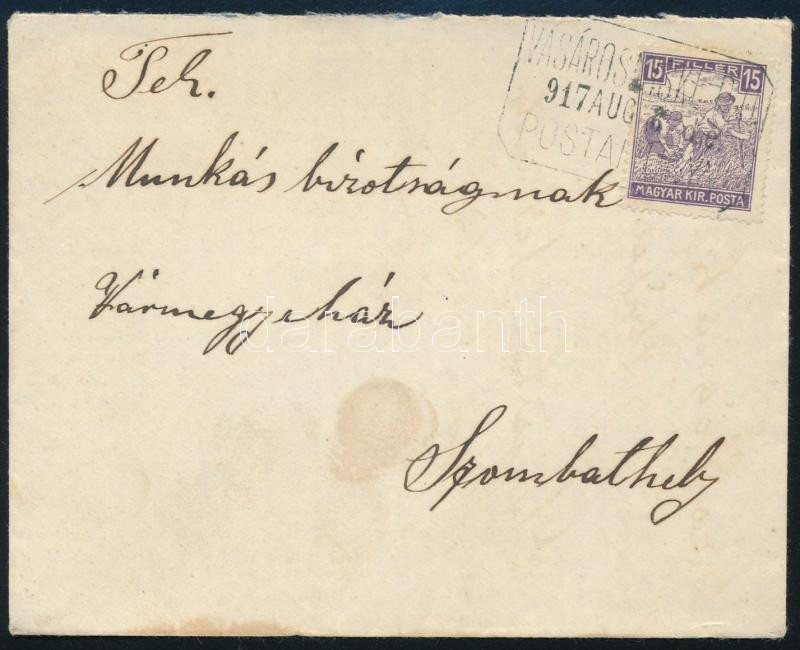 Teh.
Munkás bizotságnak
Vármegyeház
Szombathely
917 AUG
15 FILLÉR 15
MAGYAR KIR. POSTA
darabanth